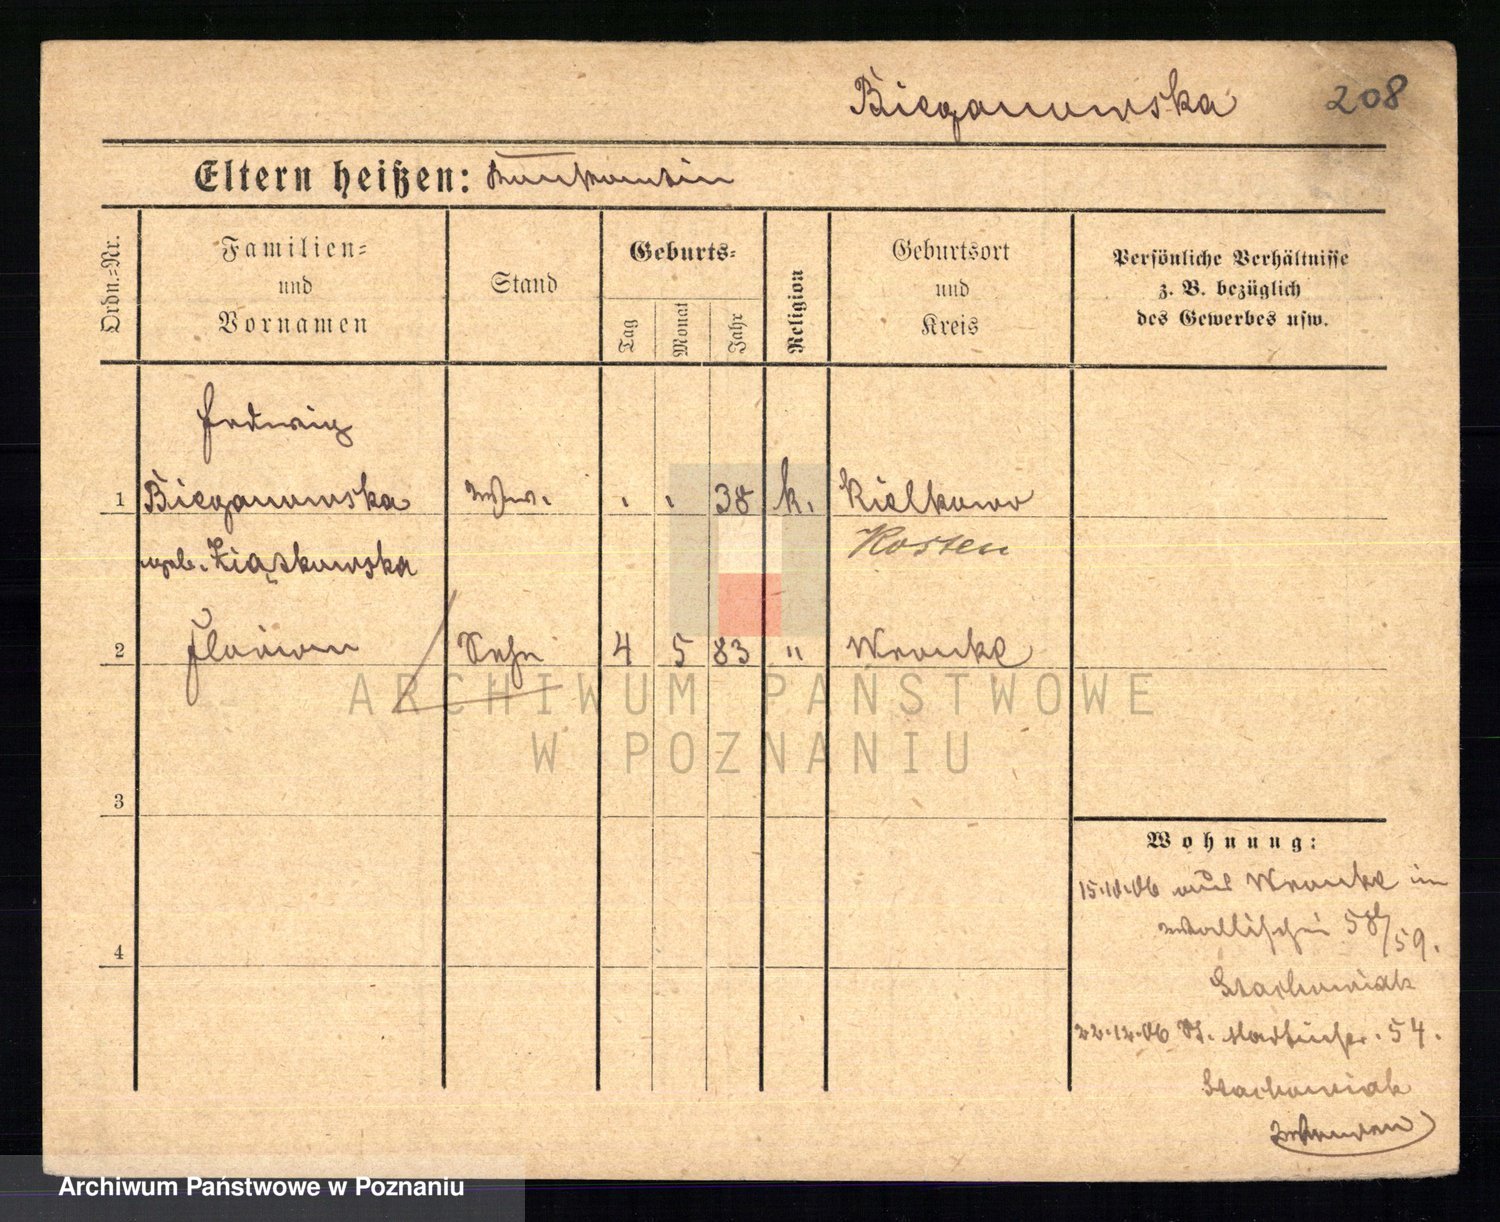 Bieganowska 208
Eltern heißen:
Ordn.=Nr.
Familien=
und
Vornamen
Stand
Geburts=
Tag
Monat
Jahr
Religion
Geburtsort
und
Kreis
Persönliche Verhältnisse
z. B. bezüglich
des Gewerbes usw.
Hedwig
1 Bieganowska Ww. 38 k. Kielkowo
geb. Ziąskowska Kosten
2 Florian Sohn 4 5 83 " Wronke
3
4
Wohnung:
15.10.06 aus Wronke in
Wallischei 58/59.
Stachowiak
22.12.06 St. Martinstr. 54.
Stachowiak
ARCHIWUM PAŃSTWOWE
W POZNANIU
Archiwum Państwowe w Poznaniu